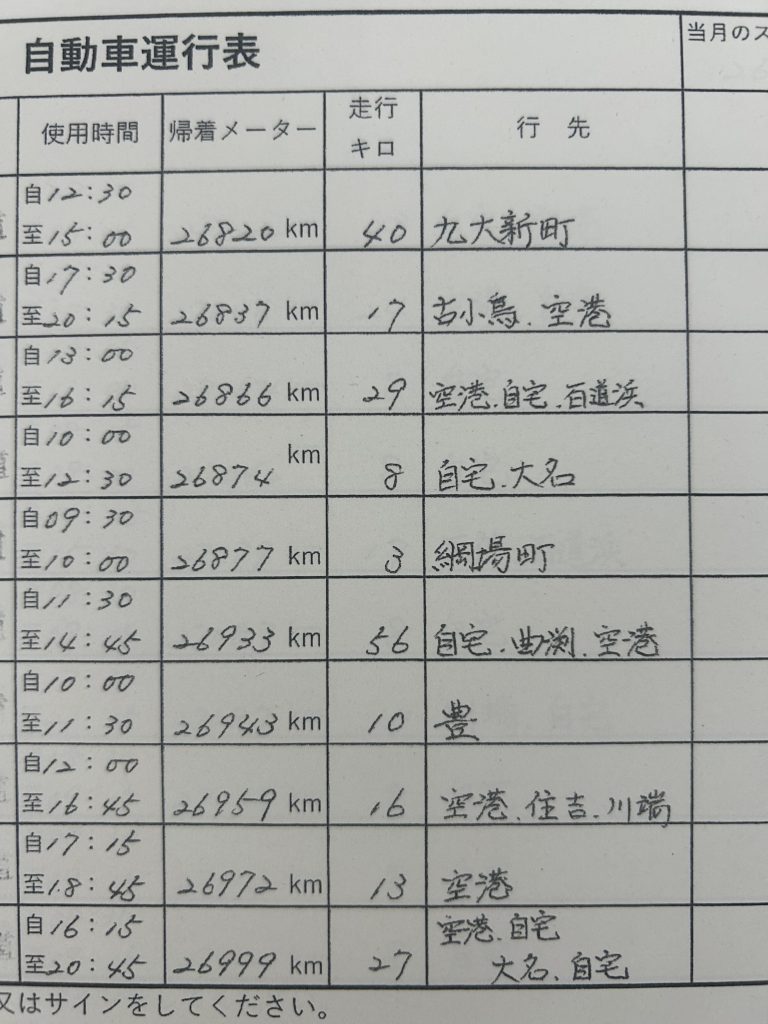 自動車運行表
当月のス
使用時間 帰着メーター 走行キロ 行 先
自12:30
至15:00 26820 km 40 九大新町
自17:30
至20:15 26837 km 17 古小烏、空港
自13:00
至16:15 26866 km 29 空港、自宅、百道浜
自10:00
至12:30 26874 km 8 自宅、大名
自09:30
至10:00 26877 km 3 綱場町
自11:30
至14:45 26933 km 56 自宅、曲渕、空港
自10:00
至11:30 26943 km 10 豊
自12:00
至16:45 26959 km 16 空港、住吉、川端
自17:15
至18:45 26972 km 13 空港
自16:15 空港、自宅
至20:45 26999 km 27 大名、自宅
又はサインをしてください。